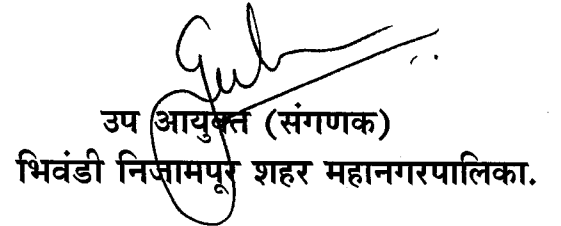 उप आयुक्त (संगणक)
भिवंडी निजामपूर शहर महानगरपालिका.